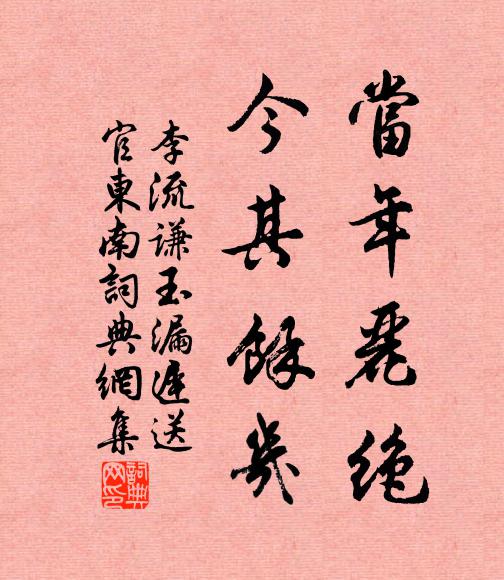 當年麗絶
今其餘幾
李流謙玉漏遲送
官東南詞典網集
詞典
网印